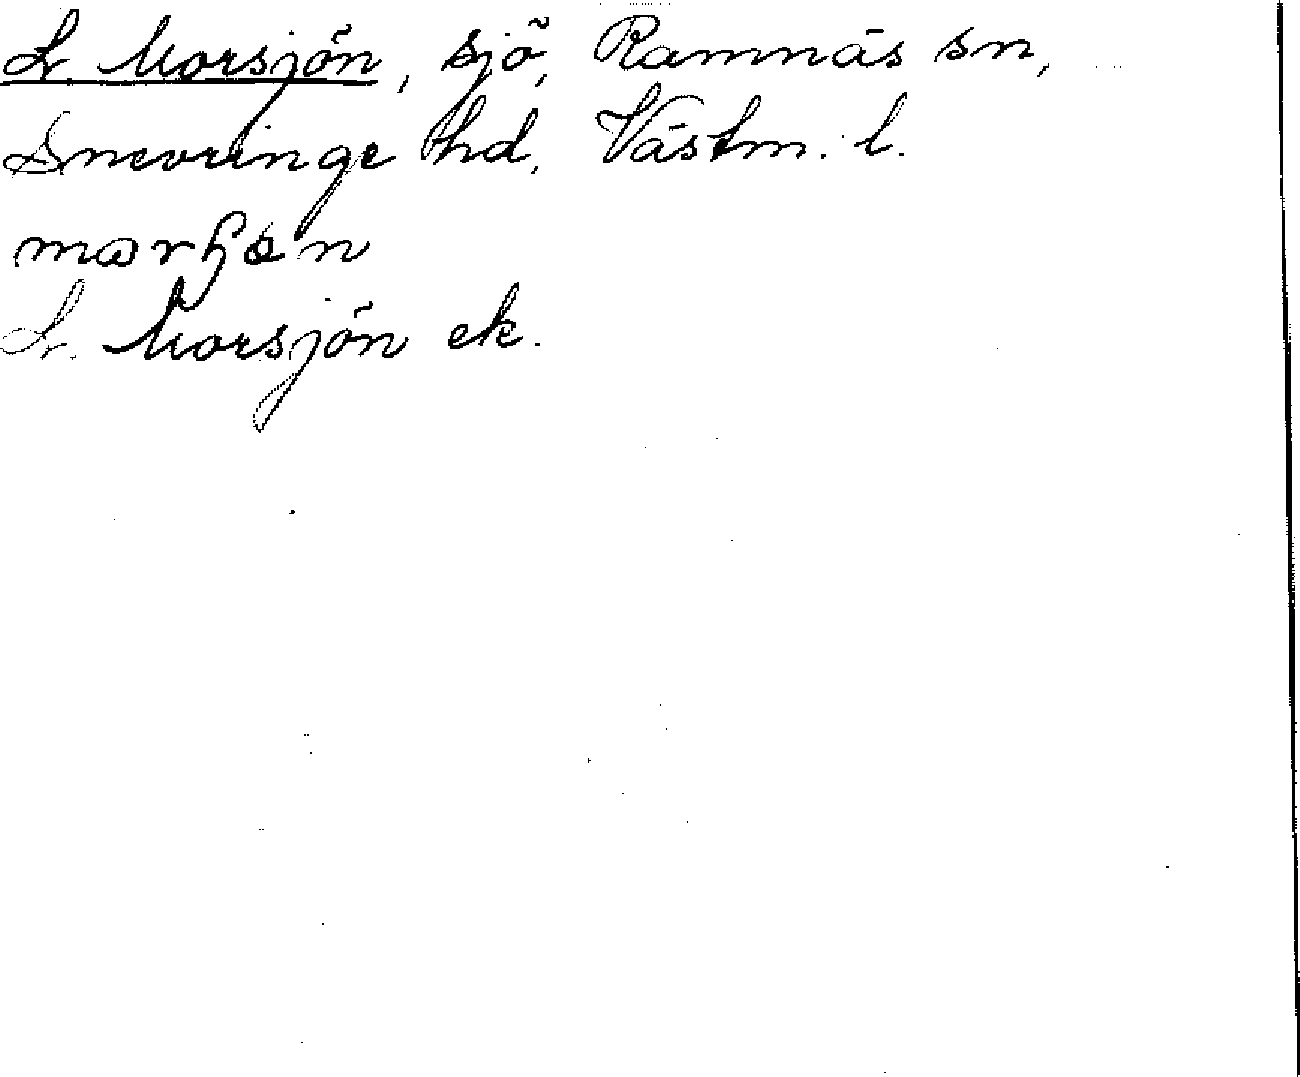 L. Morsjön, sjö, Ramnäs sn,
Snevringe hd, Västm. l.
L. Morsjön ek.